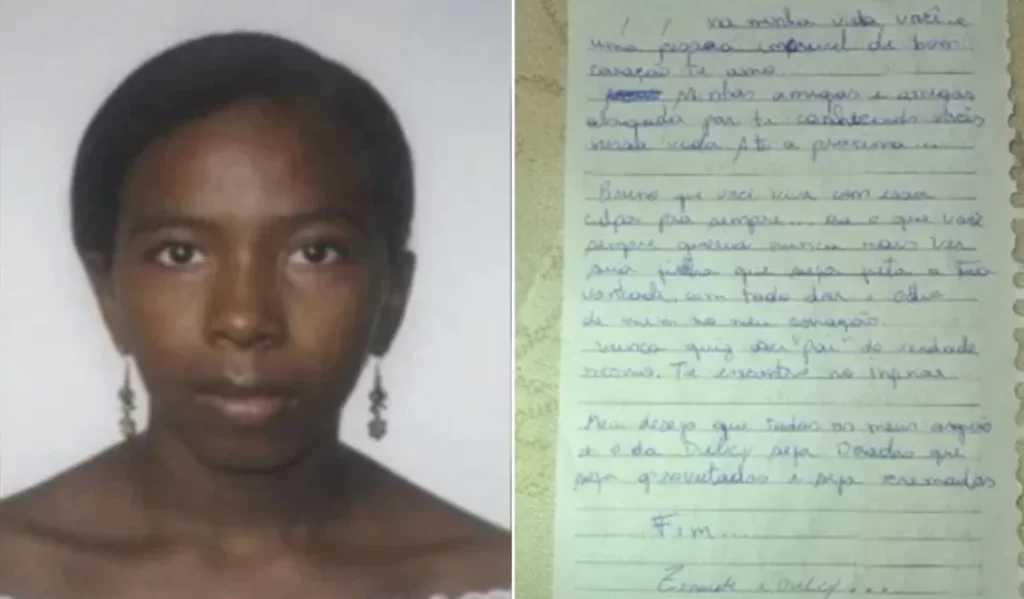 na minha vida você e
uma pessoa incrivel de bom
coração te amo
Minhas amigas e amigos
obrigada por te conhecido vocês
nessa vida Até a proxima...
Bruno que você viva com essa
culpa pra sempre... era o que você
sempre queria nunca mais ver
sua filha que seja feita a tua
vontade, com todo dor e odio
de mim no meu coração.
Nunca quiz ser "pai" de verdade
mesmo. Te encontro no inferno
Meu desejo que todos os meus orgãos
e o da Delcy seja Doados que
seja aproveitados e seja cremados
Fim...
e Delcy...